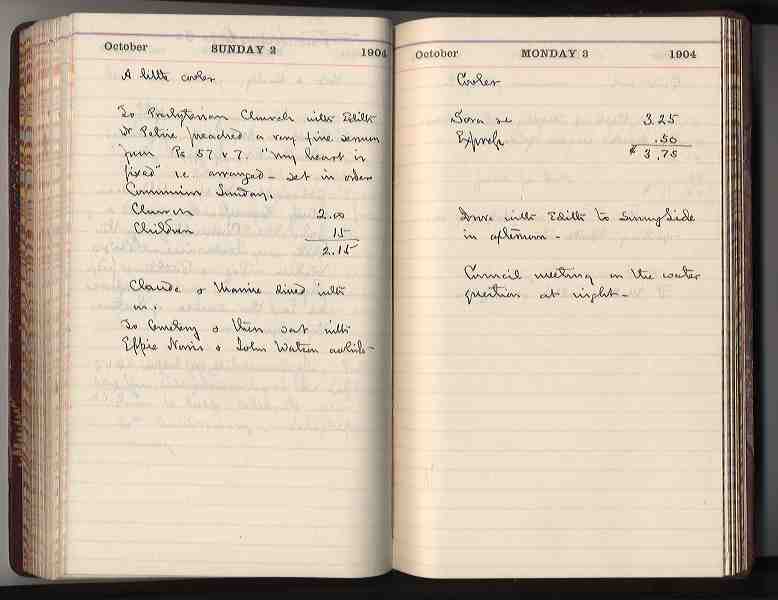 October SUNDAY 2 1904
A little cooler
To Presbyterian Church with Edith
Dr preached a very fine sermon
from Ps 57 v 7. "my heart is
fixed" i.e. arranged - set in order
Communion Sunday.
Church 2.00
Children 15
2.15
Claude & dined with
us.
To Cemetery & then sat with
Effie Norris & John Watson awhile -
October MONDAY 3 1904
Cooler
3.25
Express .50
$ 3.75
Drove with Edith to Sunny Side
in afternoon -
Council meeting on the water
question at night -